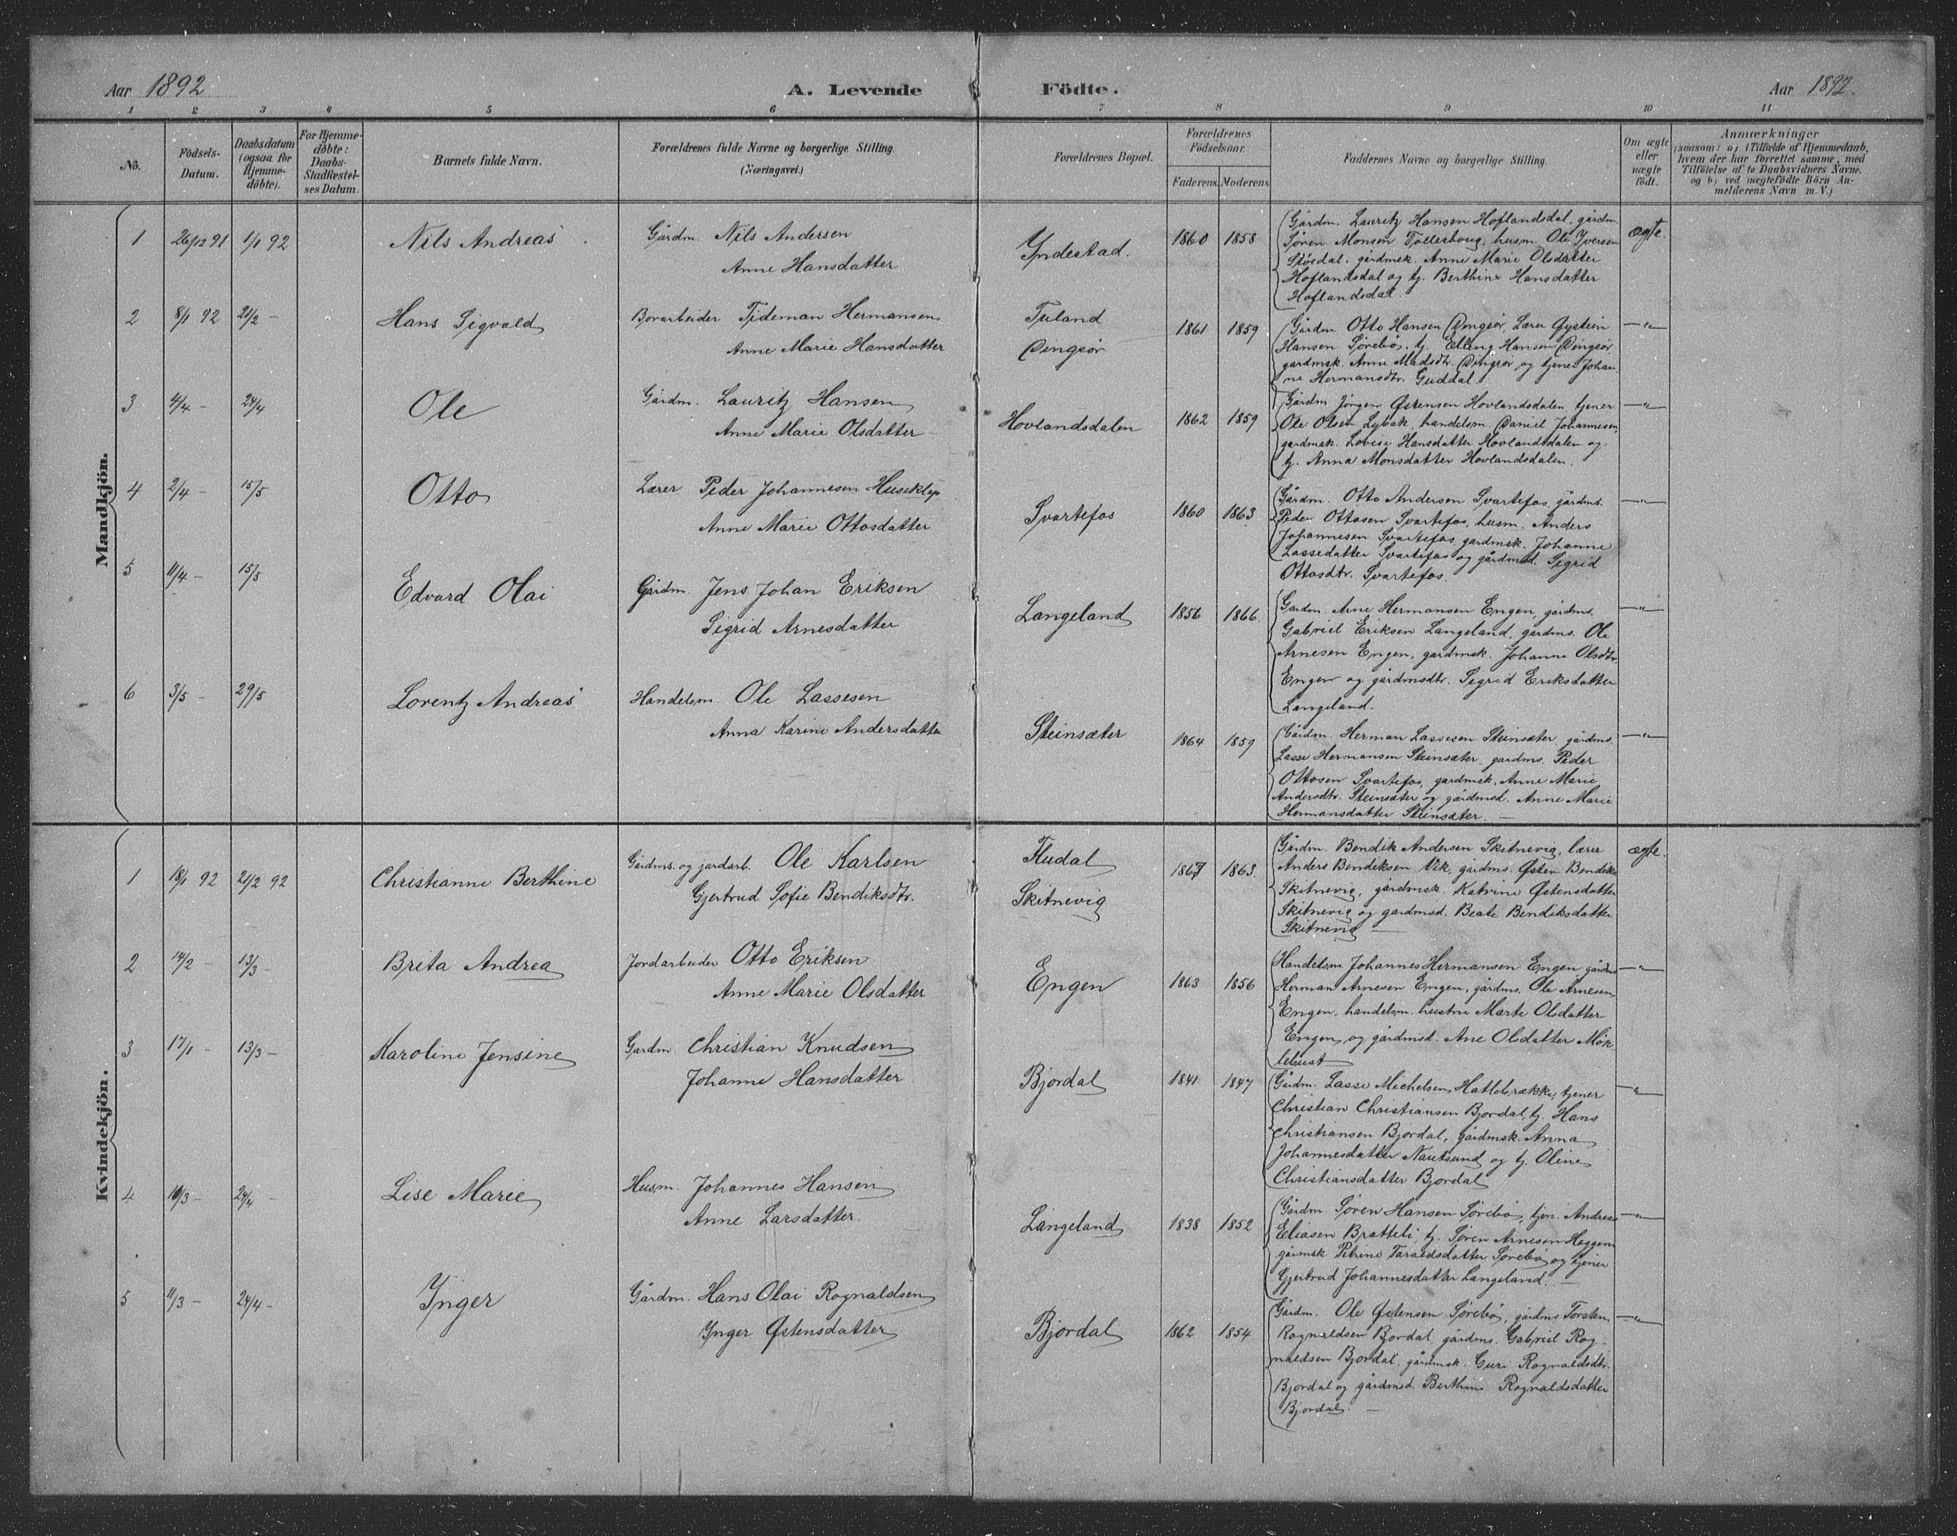 Aar 1892
A. Levende Födte.
Aar 1892.
1 2 3 4 5 6 7 8 9 10 11
No.
Födsels-Datum.
Daabsdatum (ogsaa for Hjemme-döbte).
For Hjemme-döbte: Daabs-Stadfæstel-ses Datum.
Barnets fulde Navn.
Forældrenes fulde Navne og borgerlige Stilling. (Næringsvei.)
Forældrenes Bopæl.
Forældrenes Födselsaar.
Faderens. Moderens.
Faddernes Navne og borgerlige Stilling.
Om ægte eller uægte födt.
Anmærkninger
(saasom: a) i Tilfælde af Hjemmedaab, hvem der har forrettet samme, med Tilföielse af to Daabsvidners Navne, og b) ved uægtefödte Börn An-melderens Navn m. V.)
Mandkjön.
1 26/12 91 1/1 92 Nils Andreas Gårdm. Nils Andersen
Anne Hansdatter
Yndestad. 1860 1858
Gårdm. Lauritz Hansen Hoflandsdal, gårdm.
Søren Monsen Tollesboug, husm. Ole Iversen
Støedal, gårdmsk. Anne Marie Olsdatter
Hoflandsdal og tj. Berthine Hansdatter
Hoflandsdal.
ægte.
2 8/1 92 21/2 — Hans Sigvald Borarbeider Tideman Hermansen
Anne Marie Hansdatter
Tuland
Dingsör
1861 1859
Gårdm Otto Hansen Dingsør, Lærer Øystein
Hansen Sørebø, tj. Elling Hansen Dingsør
gårdmsk. Anne Madsdtr. Dingsør, og tjener Johan
ne Hermansdtr. Guddal.
—"—
3 4/4 — 24/4 Ole Gårdm. Lauritz Hansen
Anne Marie Olsdatter
Hovlandsdalen 1862 1859
Gårdm Jørgen Østensen Hovlandsdalen tjener
Ole Olsen Lybak, handelsm Daniel Johannesen,
gårdmsk. Lovise Hansdatter Hovlandsdalen og
tj. Anna Monsdatter Hovlandsdalen.
—"—
4 2/4 — 15/5 Otto Lærer Peder Johannesen Huseklep
Anne Marie Ottosdatter
Svartefos 1860 1863
Gårdm. Otto Andersen Svartefos, gårdms.
Peder Ottosen Svartefos, husm. Anders
Johannesen Svartefos, gårdmsk. Johanne
Lassedatter Svartefos og gårdmsd. Sigrid
Ottosdtr. Svartefos.
—"—
5 11/4 — 15/5 Edvard Olai Gårdm. Jens Johan Eriksen
Sigrid Arnesdatter
Langeland 1856 1866
Gardm. Arne Hermansen Engen, gårdms.
Gabriel Eriksen Langeland, gårdms. Ole
Arnesen Engen, gardmsk. Johanne Olsdtr
Engen og gårdmsdtr. Sigrid Eriksdatter
Langeland.
—"—
6 3/5 — 29/5 Lorentz Andreas Handelsm. Ole Lassesen
Anna Karine Andersdatter
Steinsæter 1864 1859
Gårdm. Herman Lassesen Steinsæter gårdms.
Lasse Hermansen Steinsæter, gardms. Peder
Ottosen Svartefos, gardmsk. Anne Marie
Andersdtr. Steinsæter og gårdmsd. Anne Marie
Hermansdatter Steinsæter. —
—"—
Kvindekjön.
1 18/1 92 21/2 92 Christianne Berthine Gårdms. og jordarb. Ole Karlsen
Gjertrud Sofie Bendiksdtr.
Fludal
Skitnevig
1867 1863.
Gårdm. Bendik Andersen Skitnevig, lærer
Anders Bendiksen Vik, gårdms. Østen Bendiks
Skitnevig, gårdmsk. Katrine Østensdatter
Skitnevig og gardmsd. Beate Bendiksdatter
Skitnevig —
ægte.
2 14/2 — 13/3 — Brita Andrea Jordarbeider Otto Eriksen
Anne Marie Olsdatter
Engen 1863 1856
Handelsm Johannes Hermansen Engen gårdms
Herman Arnesen Engen, gårdms. Ole Arnesen
Engen, handelsm. hustru Marte Olsdatter
Engen og gårdmsd. Ane Olsdatter Møk
lebust
—"—
3 17/1 — 13/3 — Karoline Jensine Gardm. Christian Knudsen
Johanne Hansdatter
Bjordal 1841 1847
Gårdm. Lasse Michelsen Hattebrække, tjener
Christian Christiansen Bjordal, tj. Hans
Christiansen Bjordal, gårdmsk. Anna
Johannesdatter Nautsund og tj. Oline
Christiansdatter Bjordal
—"—
4 10/3 — 24/4 Lise Marie Husm. Johannes Hansen
Anne Larsdatter.
Langeland 1838 1852
Gårdm. Søren Hansen Sørebø, tjen. Andreas
Eliasen Bratteli, tj. Søren Arnesen Heggem
gårmsk Petrine Taraldsdatter Sørebø og tjener
Gjertrud Johannesdatter Langeland. —
—"—
5 11/3 — 24/4 — Ynger Gårdm. Hans Olai Rognaldsen
Ynger Østensdatter
Bjordal 1862 1854
Gårdm. Ole Østensen Sørebø, gårdms Torsten
Rognaldsen Bjordal, gårdms. Gabriel Rog-
naldsen Bjordal, gårdmsk. Guri Rognaldsdtr.
Bjordal og gårdmsd. Berthine Rognaldsdatter
Bjordal. —
—"—